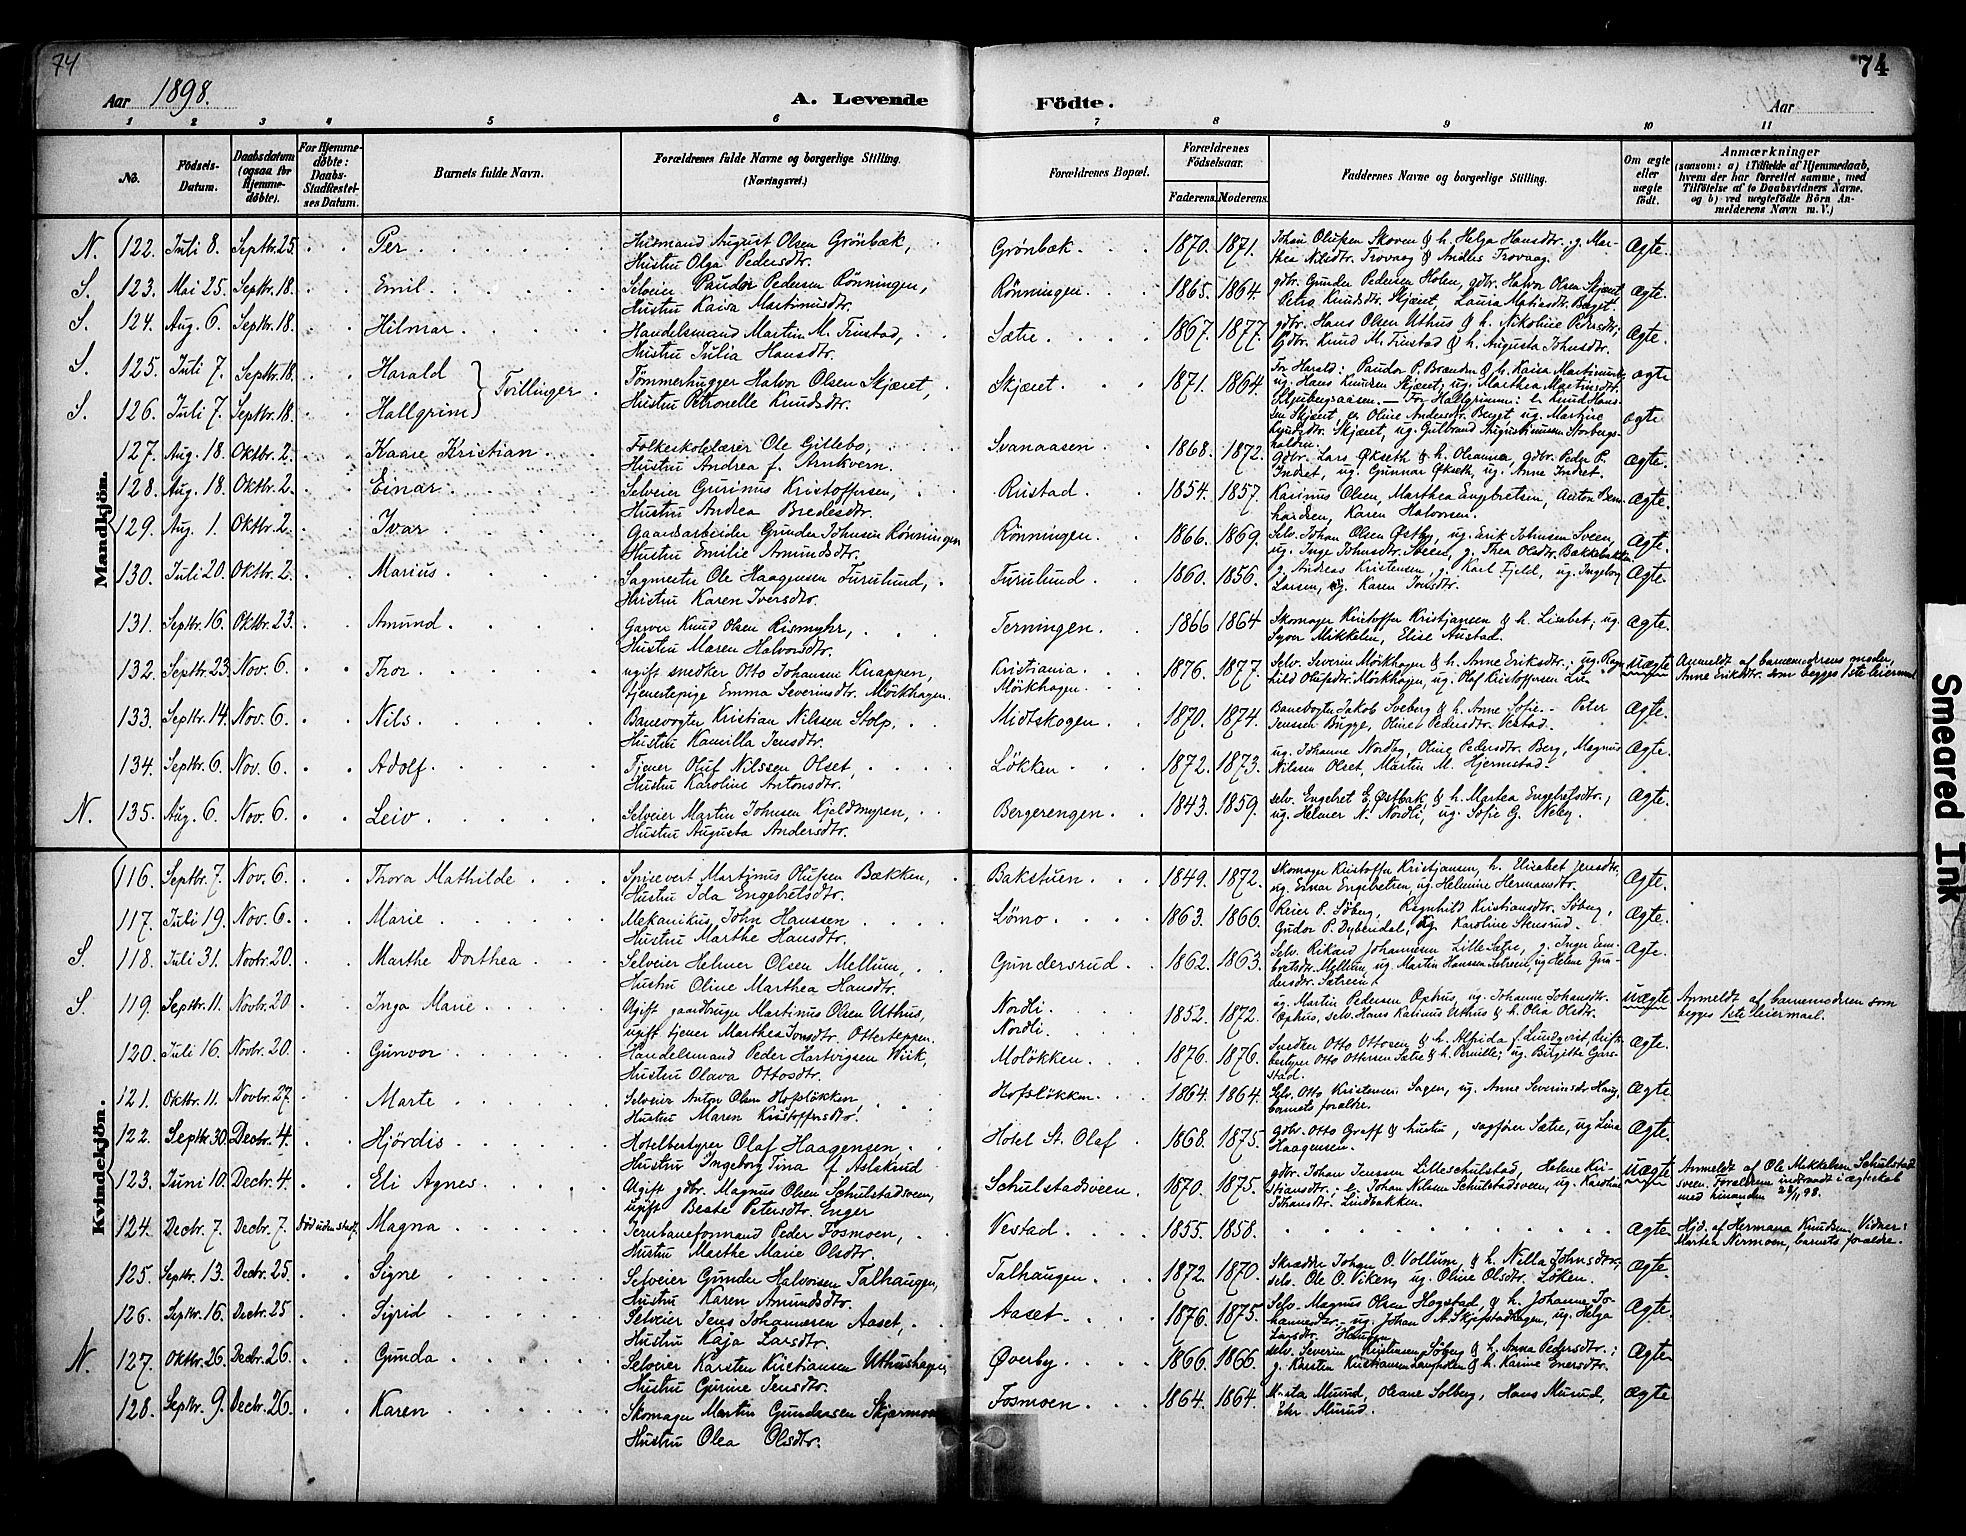 74
Aar 1898.
A. Levende
Födte.
Aar
74
1 2 3 4 5 6 7 8 9 10 11
No.
Födsels-
Datum.
Daabsdatum
(ogsaa for
Hjemme-
döbte).
For Hjemme-
döbte:
Daabs-
Stadfæstel-
ses Datum.
Barnets fulde Navn.
Forældrenes fulde Navne og borgerlige Stilling.
(Næringsvei.)
Forældrenes Bopæl.
Forældrenes
Födselsaar.
Faderens. Moderens.
Faddernes Navne og borgerlige Stilling.
Om ægte
eller
uægte
födt.
Anmærkninger
(saasom: a) i Tilfælde af Hjemmedaab,
hvem der har forrettet samme, med
Tilföielse af to Daabsvidners Navne.
og b) ved uægtefödte Börn An-
melderens Navn m. V.)
Mandkjön.
N. 122. Juli 8. Septbr. 25. Per Husmand August Olsen Grönbæk, Grönbæk 1870. 1871. Johan Olufsen Skoven & h. Helga Hansdtr. g. Mar- Ægte.
Hustru Olga Pedersdtr. thea Nilsdtr. Trovaag & Andreas Trovaag.
S. 123. Mai 25. Septbr. 18. Emil Selveier Paudor Pedersen Rönningen, Rönningen 1865. 1864. gdbr. Gunder Pedersen Holen, gdbr. Halvor Olsen Skjæret, Ægte.
Hustru Kaisa Martinusdtr. Petra Knudsdtr. Skjæret, Laura Matisdtr. Berget.
S. 124. Aug. 6. Septbr. 18. Hilmar Handelsmand Martin M. Finstad, Sætre 1867. 1877. gdbr. Hans Olsen Uthus & h. Nikoline Pedersdtr; Ægte.
Hustru Julia Hansdtr. Gdbr. Knud M. Finstad & h. Augusta Johnsdtr.
S. 125. Juli 7. Septbr. 18. Harald Tvillinger Tömmerhugger Halvor Olsen Skjæret, Skjæret 1871. 1864. For Harald: Paudor P. Brænden & h. Kaisa Martinusdtr. ægte
ug. Hans Knudsen Skjæret, ug. Marthea Martinsdtr.
S. 126. Juli 7. Septbr. 18. Hallgrim Hustru Petronelle Knudsdtr. Stubergsaasen. — For Hallgrim: e. Knud Han- ægte
sen Skjæret, e. Oline Andersdtr. Berget, ug. Martine
Knudsdtr. Skjæret, ug. Gulbrand Augustinusen Storbergs-
holden.
127. Aug. 18. Oktbr. 2. Kaare Kristian Folkeskolelærer Ole Gillebo, Svanaasen 1868. 1872. Gdbr. Lars Økseth & h. Oleanna, gdbr. Peder P. Ægte.
Hustru Andrea f. Arnkvern. Indset, ug. Gunnar Økseth, ug. Anne Indset.
128. Aug. 18. Oktbr. 2. Einar Selveier Gurinus Kristoffersen, Rustad 1854. 1857. Karinus Olsen, Marthea Engebretsen, Anton Bern- Ægte.
Hustru Andrea Bredesdtr. hardsen, Karen Halvorsen.
129. Aug. 1. Oktbr. 2. Ivar Gaardsarbeider Gunder Johnsen Rönningen Rönningen 1866. 1869. Selv. Johan Olsen Østby, ug. Erik Johnsen Sveen, Ægte.
Hustru Emilie Amundsdtr. ug. Inge Johnsdtr. Sveen, g. Thea Olsdtr. Bakkebakken.
130. Juli 20. Oktbr. 2. Marius Sagmester Ole Haagensen Furulund, Furulund 1860. 1856. g. Andreas Kristensen, g. Karl Fjeld, ug. Ingeborg Ægte.
Hustru Karen Iversdtr. Larsen, ug. Karen Ivensdtr.
131. Septbr. 16. Oktbr. 23. Amund Garver Knud Olsen Rismyhr, Terningen 1866 1864 Skomager Kristoffer Kristjansen & h. Lisabet, ug. Ægte.
Hustru Maren Halvorsdtr. Syver Mikkelsen, Elise Austad.
132. Septbr. 23. Nov. 6. Thor ugift snedker Otto Johansen Knappen, Kristiania 1876. 1877. Selv. Severin Mörkhagen & h. Anne Eriksdtr.; ug. Ragn- uægte Anmeldt af barnemoderens moder,
tjenestepige Emma Severinsdtr. Mörkhagen. Mörkhagen hild Olufsdtr. Mörkhagen, ug. Olaf Kristoffersen Lie. Anne Eriksdtr. som begges 1ste leiermaal.
133. Septbr. 14. Nov. 6. Nils Banevogter Kristian Nilssen Stolp, Midtskogen 1870. 1874. Banevogter Jakob Sveberg & h. Anne Sofie. — Peter Ægte.
Hustru Kamilla Jensdtr. Jensen Bugge, Oline Pedersdtr. Vestad.
134. Septbr. 6. Nov. 6. Adolf Tjener Oluf Nilssen Olset, Løkken 1872. 1873. ug. Johanne Nordby, Oline Pedersdtr. Berg, Magnus Ægte.
Hustru Karoline Antonsdtr. Nilsen Olset, Martin M. Hjermstad.
N. 135. Aug. 6. Nov. 6. Leiv Selveier Martin Johnsen Kjeldmyren, Bergerengen 1843. 1859. selv. Engebret E. Østbak & h. Martea Engebretsdtr.; Ægte.
Hustru Augusta Andersdtr. ug. Helmer N. Nordli, ug. Sofie G. Neby.
Kvindekjön.
116. Septbr. 7. Nov. 6. Thora Mathilde Spisevert Martinus Olufsen Bækken, Bakstuen 1849. 1872. Skomager Kristoffer Kristjansen, h. Elisabet Jensdtr. Ægte.
Hustru Ida Engebretsdtr. ug. Einar Engebretsen, ug. Helmine Hermansdtr.
117. Juli 19. Nov. 6. Marie Mekanikus John Hanssen Lömo 1863. 1866. Reier P. Söberg, Regnhild Kristiansdtr. Söberg, Ægte.
Hustru Marthe Hansdtr. Gudor P. Dybendal, ug. Karoline Stensrud.
S. 118. Juli 31. Novbr. 20. Marthe Dorthea Selveier Helmer Olsen Mellum, Gundersrud 1862. 1863. Selv. Rikard Johannesen Lille-Sætre, g. Inger Em- Ægte.
Hustru Oline Marthea Hansdtr. bretsdtr. Mellum, ug. Martin Hanssen Sætreeie, ug. Helene Gun-
dersdtr. Sætreeie.
S. 119. Septbr. 11. Novbr. 20 Inga Marie Ugift gaardbruger Martinus Olsen Uthus, Nordli 1852. 1872. ug. Martin Pedersen Ophus, ug. Johanne Johansdtr. uægte Anmeldt af barnemodren som
ugift tjener Marthea Ivensdtr. Otterteppen. Nordli Ophus, selv. Hans Karinus Uthus & h. Olia Olsdtr. begges 1ste leiermael.
120. Juli 16. Novbr. 20. Gunvor Handelsmand Peder Hartvigsen Wiik, Moløkken 1876. 1876. Snedker Otto Ottosen & h. Alfrida f. Lundqvist, drift- Ægte.
Hustru Olava Ottosdtr. bestyrer Otto Ottersen Sætre & h. Pernille; ug. Birgitte Gars-
stad.
121. Oktbr. 11. Novbr. 27. Marte Selveier Anton Olsen Hofsløkken Hofsløkken 1864. 1864. Selv. Otto Kristensen Sagen, ug. Anne Severinsdtr. Haug, Ægte.
Hustru Maren Kristoffersdtr. barnets forældre.
122. Septbr. 30. Decbr. 4. Hjördis Hotelbestyrer Olaf Haagensen, Hotel St. Olaf 1868. 1875. gdbr. Otto Graff & hustru, sagfører Sætre, ug. Lina Ægte.
Hustru Ingeborg Tina f. Aslaksrud Haagensen.
123. Juni 10. Decbr. 4. Eli Agnes Ugift gdbr. Magnus Olsen Schulstadsveen, Schulstadsveen 1870. 1875. gdbr. Johan Jenssen Lilleschulstad, Helene Kri- uægte Anmeldt af Ole Mikkelsen Schulstad-
ugift Beate Petersdtr. Enger stiansdtr., e. Johan Nilsen Schulstadsveen, ug. Karoline sveen. Forældrene indtraadt i ægteskab
Johansdtr. Lindbakken. med hinanden 28/11 98.
124. Decbr. 7. Decbr. 7. Död uden stadf. Magna Jernbaneformand Peder Fosmoen, Vestad 1855. 1858. Ægte Hjd. af Hermana Knudsen. Vidner:
Hustru Marthe Marie Olsdtr. Martea Nermoen, barnets forældre.
125. Septbr. 13. Decbr. 25. Signe Selveier Gunder Halvorsen Talhaugen, Talhaugen 1872. 1870. Skrædder Johan O. Vollum, & h. Nella Johnsdtr, Ægte.
Hustru Karen Amundsdtr. selv. Ole O. Viken, ug. Oline Olsdtr. Løken.
126. Septbr. 16. Decbr. 25 Sigrid Selveier Jens Johannesen Aaset, Aaset 1876. 1875. Selv. Magnus Olsen Hogstad, & h. Johanne Jo- Ægte.
Hustru Kaja Larsdtr. hannesdtr. — ug. Johan A. Skjefstadhagen, ug. Helga
Larsdtr. Haugen.
N. 127. Oktbr. 26. Decbr. 26. Gunda Selveier Karsten Kristiansen Uthushagen, Øverby 1866. 1866. selv. Severin Kristiansen Söberg & h. Anna Pedersdtr.; Ægte
Hustru Gurine Jensdtr. g. Karsten Kristiansen Langholen & h. Karine Enersdtr.
128. Septbr. 9. Decbr. 26. Karen Skomager Martin Gundersen Skjærmoen Fosmoen 1864. 1864. Marta Muud, Oleane Solberg, Hans Murud, Ægte
Hustru Olea Olsdtr. Murud.
Smeared Ink